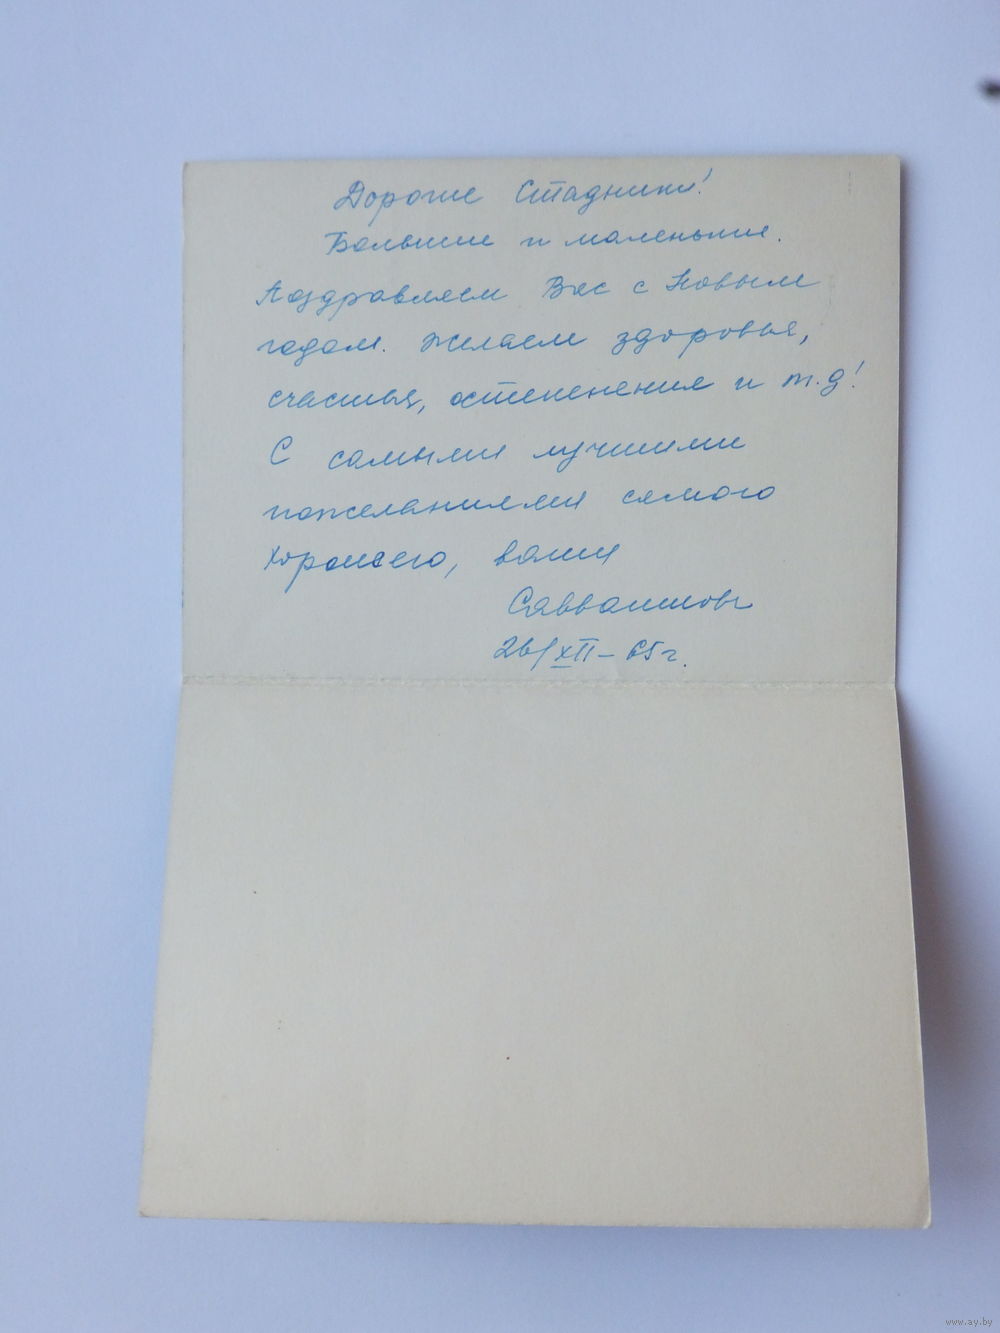 Дорогие Стадники!
Большие и маленькие.
Поздравляем Вас с Новым
годом. Желаем здоровья,
счастья, остепенения и т.д!
С самыми лучшими
пожеланиями самого
хорошего, ваши
Савватимовы
26/XII – 65г.
www.ay.by